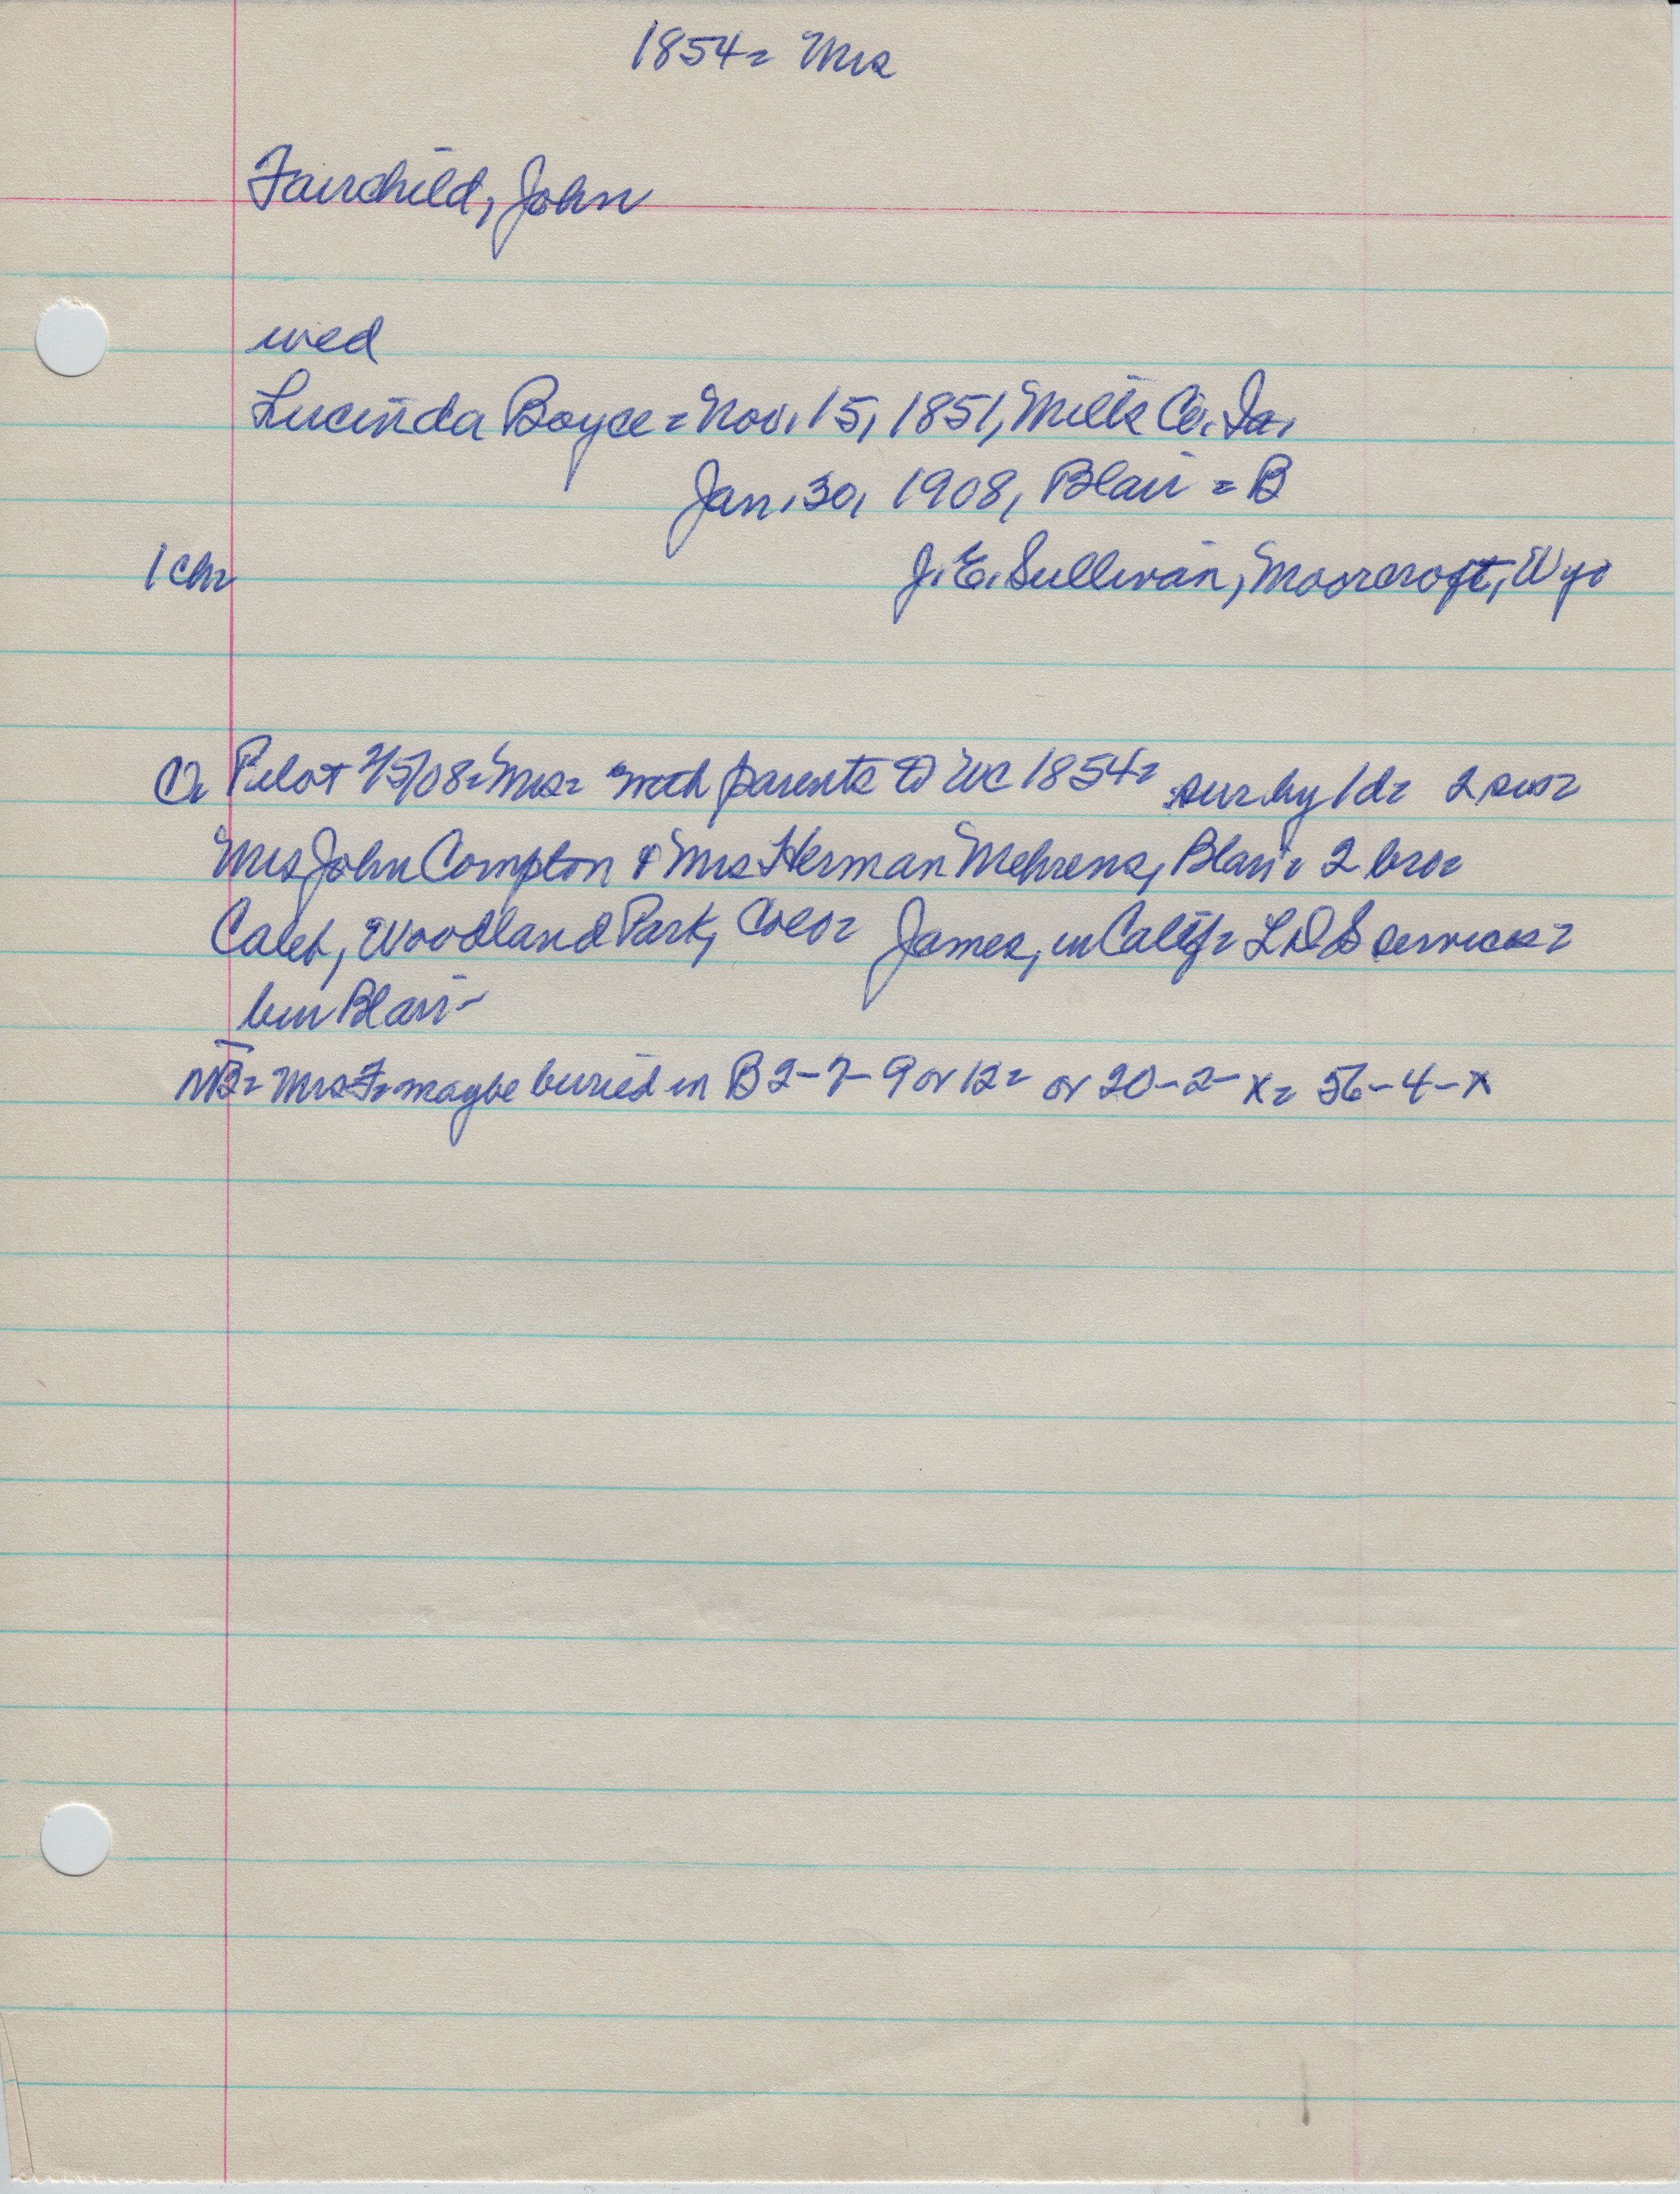 1854= Mrs
Fairchild, John
wed
Lucinda Boyce = Nov. 15, 1851, Mills Co. Ia.
Jan. 30, 1908, Blair = B
1 Ch= J. E. Sullivan, Moorcroft, Wyo
O= Pilot 2/5/08= Mrs= with parents to WC 1854= sur by 1 d= 2 sis=
Mrs John Compton & Mrs Herman Mehrens, Blair= 2 bro=
Caleb, Woodland Park, Colo= James, in Calif= LDS services=
bur Blair-
NB= Mrs F= maybe buried in B 2-7-9 or 12= or 20-2-x= 56-4-x